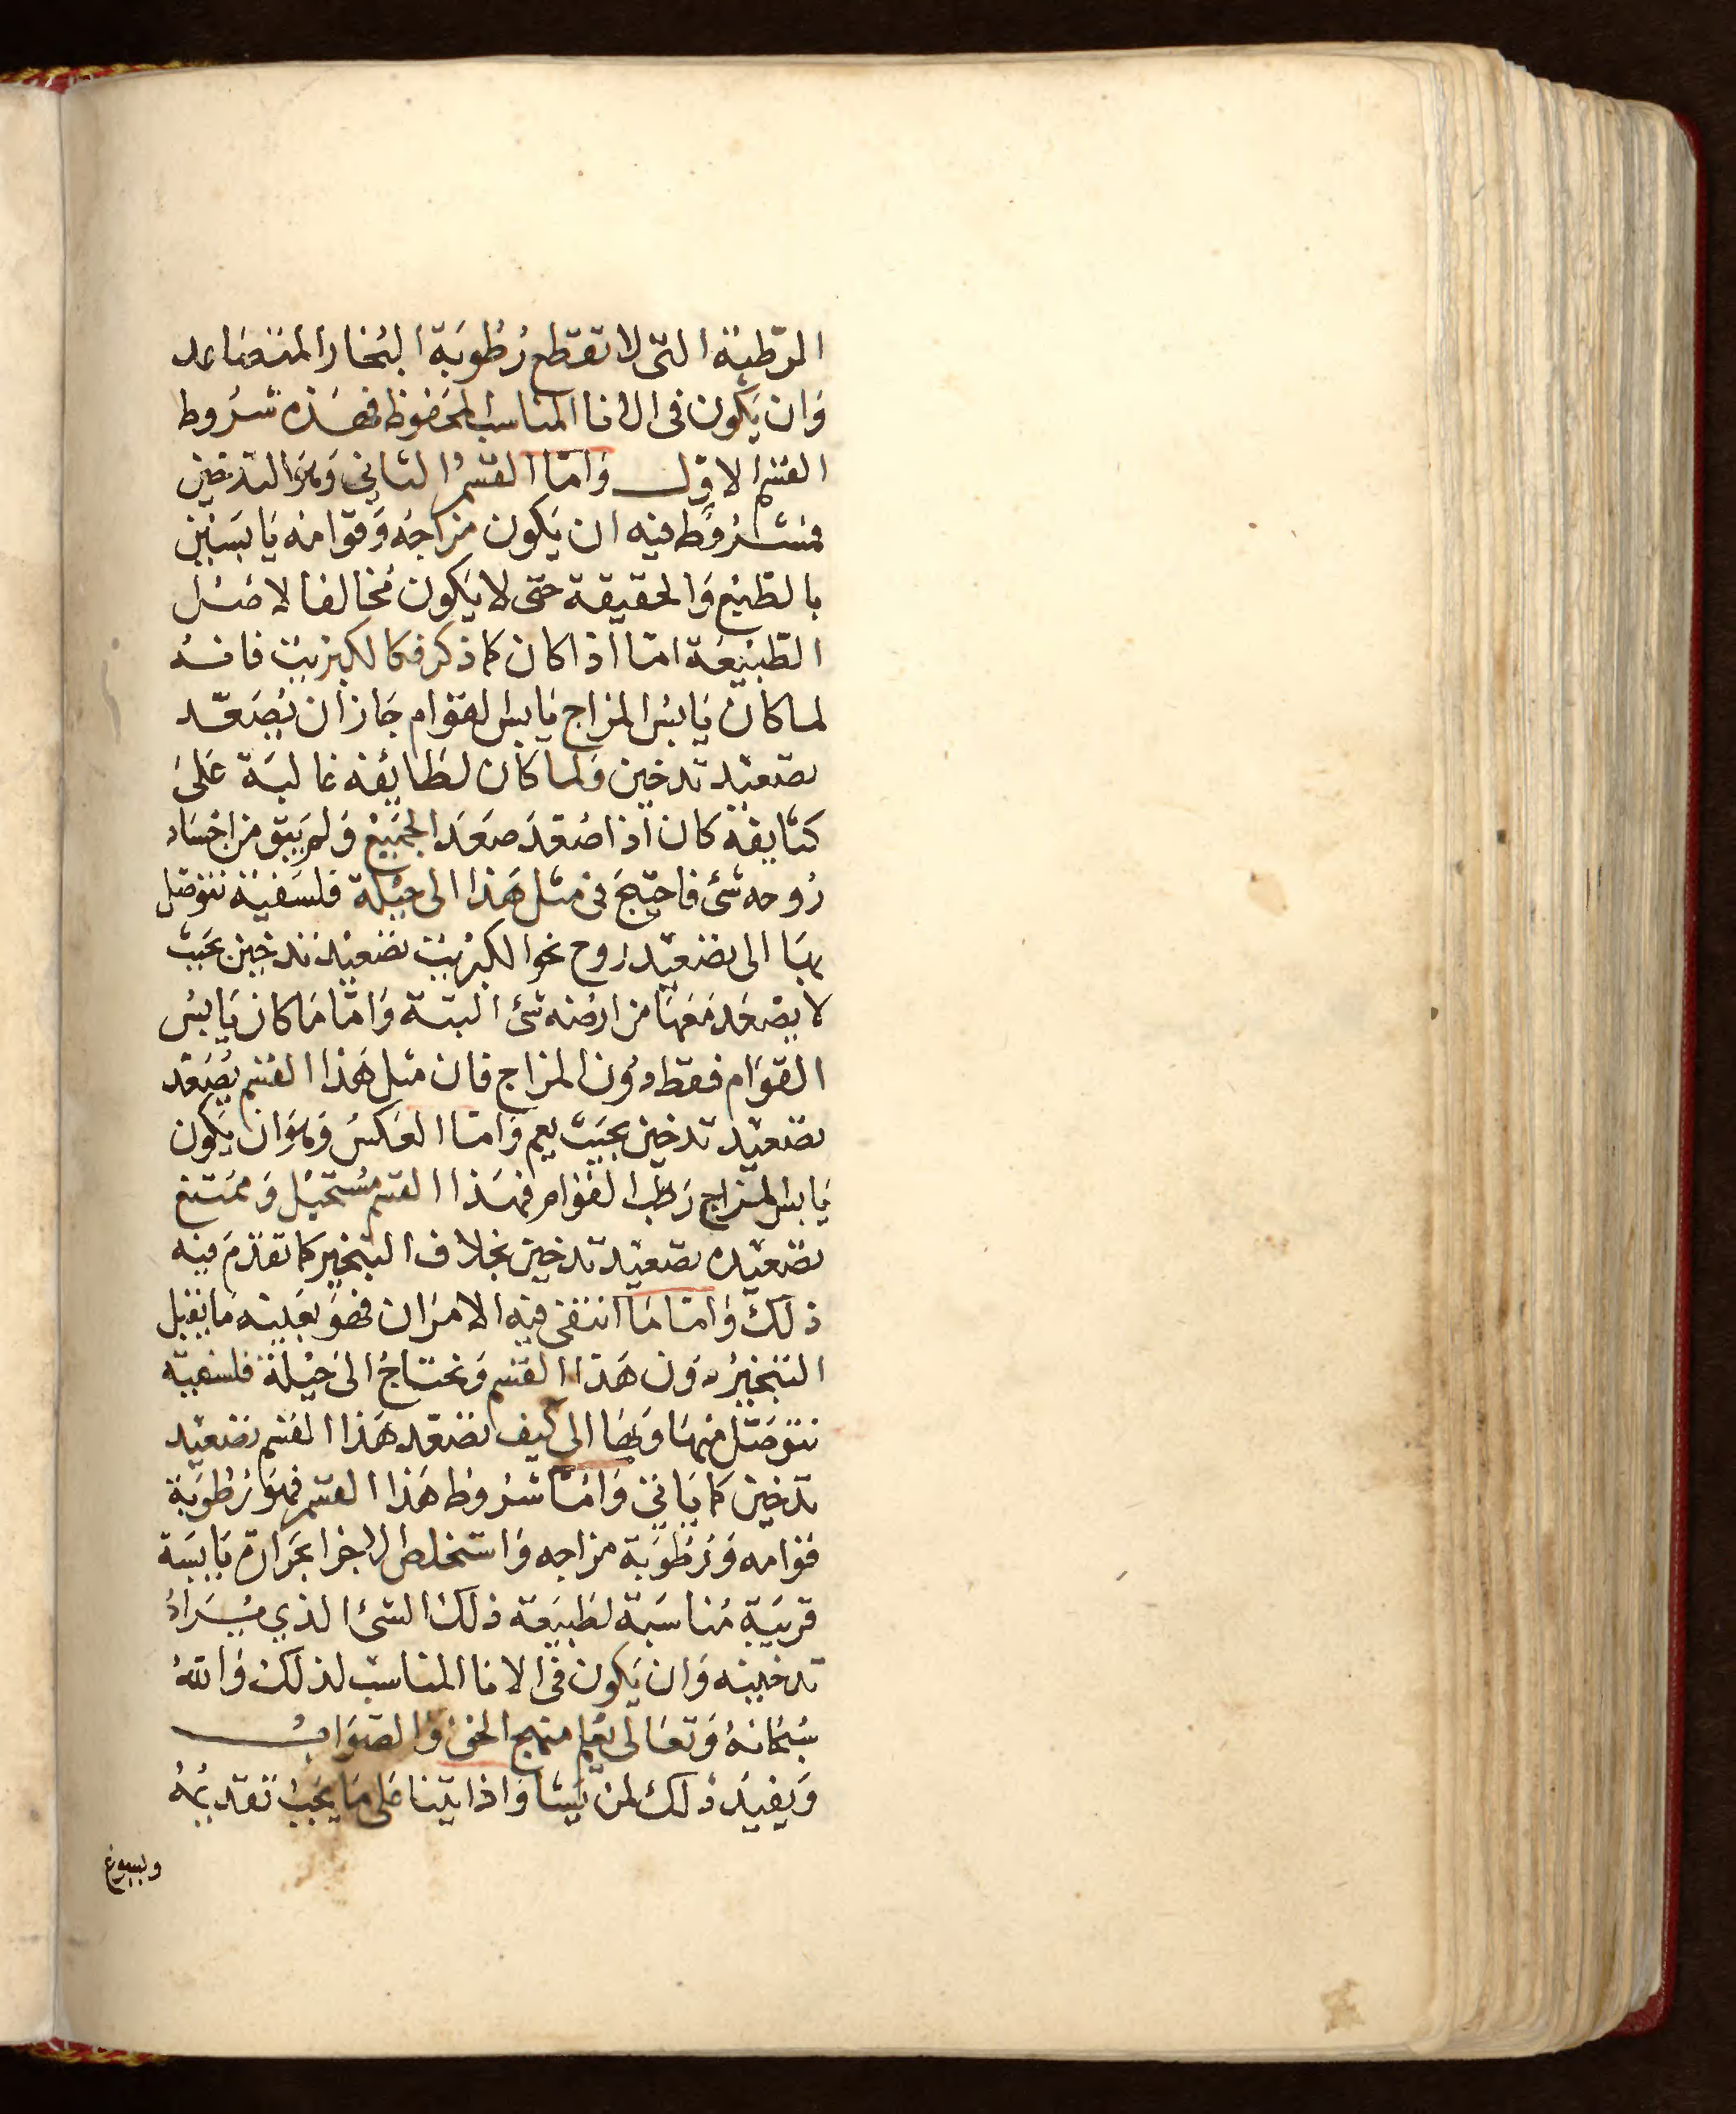 المرطبة التي لا تقطع رُطُوبَة البُخار المتصَاعد
وَان يَكون فى الانا المناسب المحفوظ فهَذه شرُوط
القسم الاول وَامّا القسمُ الثاني وَهوَ التدخين
فمشرُوط فيه ان يَكون مزاجهُ وَقوامه يَابسَين
بالطبْع وَالحقيقة حتى لا يَكون مخالفا لاصْل
الطبيعَة امّا اذا كان كما ذكر فكالكبريت فانه
لما كان يَابسُ المزاج يَابس القوام جَاز ان يُصَعّد
تصعيد تدخين وَلما كان لطَايفه غالبَة عَلىَ
كثايفه كان اذا صُعّدَ صَعَدَ الجميع وَلم يَبق من اجْسَاد
رُوحه شئ فاحتيجَ في مثل هَذا الى حيْلة فلسَفيّة نتوَصّل
بهَا الى تصْعيْد رُوح نحو الكبْريت تصْعيْد تدخين بحَيث
لا يصْعَد مَعَهَا من ارضه شئ البتة وَامّا مَا كان يَابسُ
القوَام فقط دوُن المزاج فان مثل هَذا القسم يُصَعّد
تصْعيْد تدخين بحَيث يعم وَامّا العَكسُ وَهوَ ان يَكون
يَابس المزاج رَطْب القوَام فهَذا القسم مُستحيْل وَممتنع
تصْعيْده تصْعيْد تدخين بخلاف التبْخير كما تقدّمَ فيه
ذلك وَامّا مَا انتفى فيه الامرَان فهوَ بعَيْنه مَا يقبل
التبْخيرُ دوُن هَذا القسم وَنحتاجُ الىَ حيْلة فلسفيّه
نتوَصّل منهَا وَبهَا الى كيف نصَعّد هَذا القسم تصْعيْد
تدخين كما يَاتي وَامّا شرُوط هَذا القسم فهوَ رُطُوبَة
قوَامه وَرُطُوبَة مزاجه وَاستخلاص الاجزا بحَرَارة يَابسَة
قريبَة مُناسَبَة لطبيعَة ذلك الشئ الذي يُرَادُ
تدخينه وَان يَكون في الانا المناسب لذلك وَاللهُ
سُبْحانهُ وَتعَالى يُعْلم منهج الحق وَالصّوَاب
وَيفيْدُ ذلك لمن يَشا وَاذا بيّنا عَلى مَا يجبُ تقديمُهُ